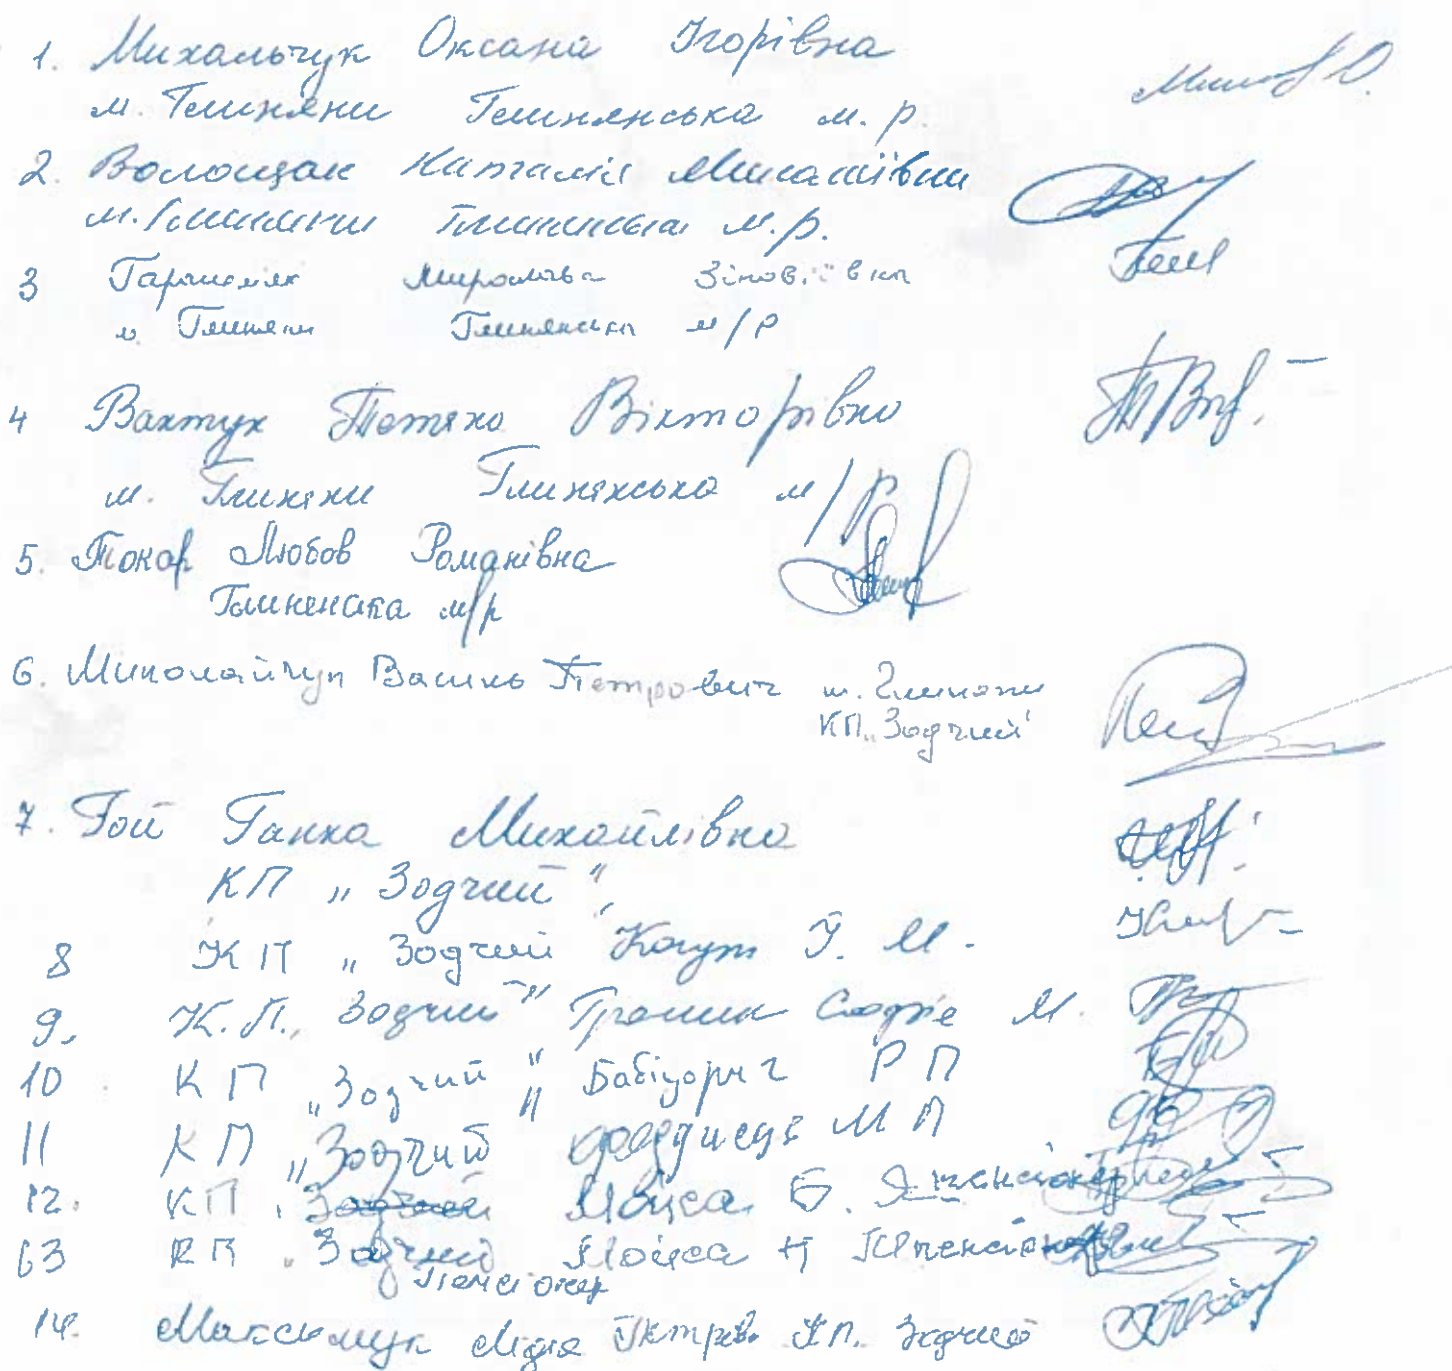 1. Михальчук Оксана Ігорівна
м. Глиняни Глинянська м. р.
2. Волощак Наталія Михайлівна
м. Глиняни Глинянська м.р.
3 Мирослава Зіновіївна
м. Глиняни Глинянська м/р
4 Вахтук Тетяна Вікторівна
м. Глиняни Глинянська м/р
5. Токар Любов Романівна
Глиненська м/р
6. Миколайчук Василь Петрович м. Глиняни
КП „Зодчий"
7. Гой Ганна Михайлівна
КП „Зодчий"
8 КП „Зодчий" Когут І. М.
9. К.П. „Зодчий" Софія М.
10 КП „Зодчий" Р П
11 КП „Зодчий" М П
12. КП Мойса Б. пенсіонер
13 КП „Зодчий Мойса
Пенсіонер
14. Максимук Лідія Петрів. КП. Зодчий